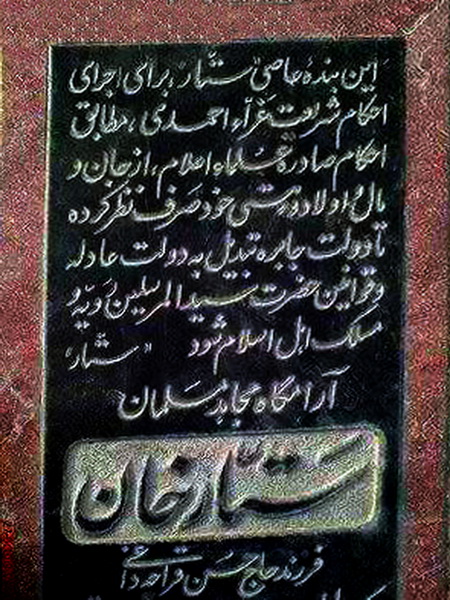 این بندهٔ عاصی "ستّار"، برای اجرای
احکام شریعت غرّاء احمدی، مطابق
احکام صادرهٔ علماء اعلام، از جان و
مال و اولاد و هستی خود صرف نظر کرده
تا دولت جابره تبدیل به دولت عادله
و قوانین حضرت سیدالمرسلین رویه و
مسلک اهل اسلام شود "ستّار"
آرامگاه مجاهد مسلمان
ستّارخان
فرزند حاج حسن قراجه داغی